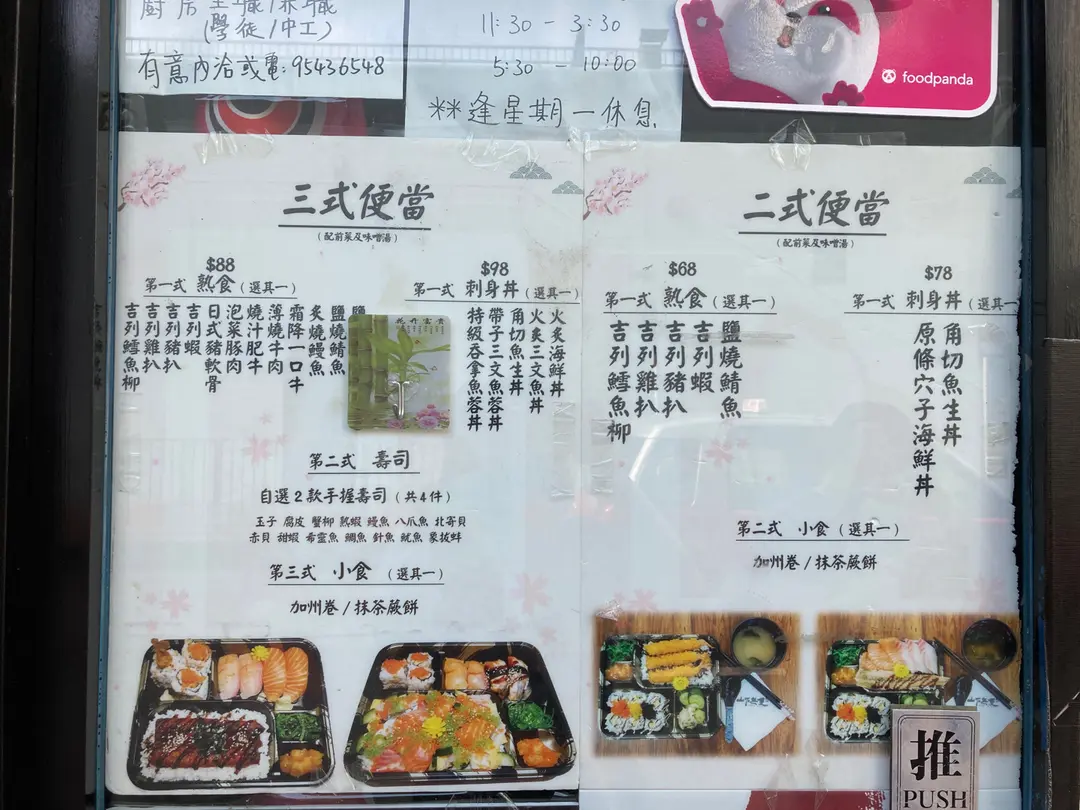 (學徒/中工)
有意內洽或電:95436548
11:30 - 3:30
5:30 - 10:00
**逢星期一休息
foodpanda
三式便當
(配前菜及味噌湯)
$88
第一式 熟食 (選其一)
吉列鱈魚柳
吉列雞扒
吉列豬扒
吉列蝦
日式豬軟骨
泡菜豚肉
燒汁肥牛
薄燒牛肉
霜降一口牛
炙燒鰻魚
鹽燒鯖魚
鹽燒
花開富貴
$98
第一式 刺身丼 (選其一)
特級吞拿魚蓉丼
帶子三文魚蓉丼
角切魚生丼
火炙三文魚丼
火炙海鮮丼
第二式 壽司
自選2款手握壽司 (共4件)
玉子 腐皮 蟹柳 熟蝦 鰻魚 八爪魚 北寄貝
赤貝 甜蝦 希靈魚 鯛魚 針魚 魷魚 象拔蚌
第三式 小食 (選其一)
加州卷 / 抹茶蕨餅
二式便當
(配前菜及味噌湯)
$68
第一式 熟食 (選其一)
吉列鱈魚柳
吉列雞扒
吉列豬扒
吉列蝦
鹽燒鯖魚
$78
第一式 刺身丼 (選其一
原條穴子海鮮丼
角切魚生丼
第二式 小食 (選其一)
加州卷 / 抹茶蕨餅
推
PUSH